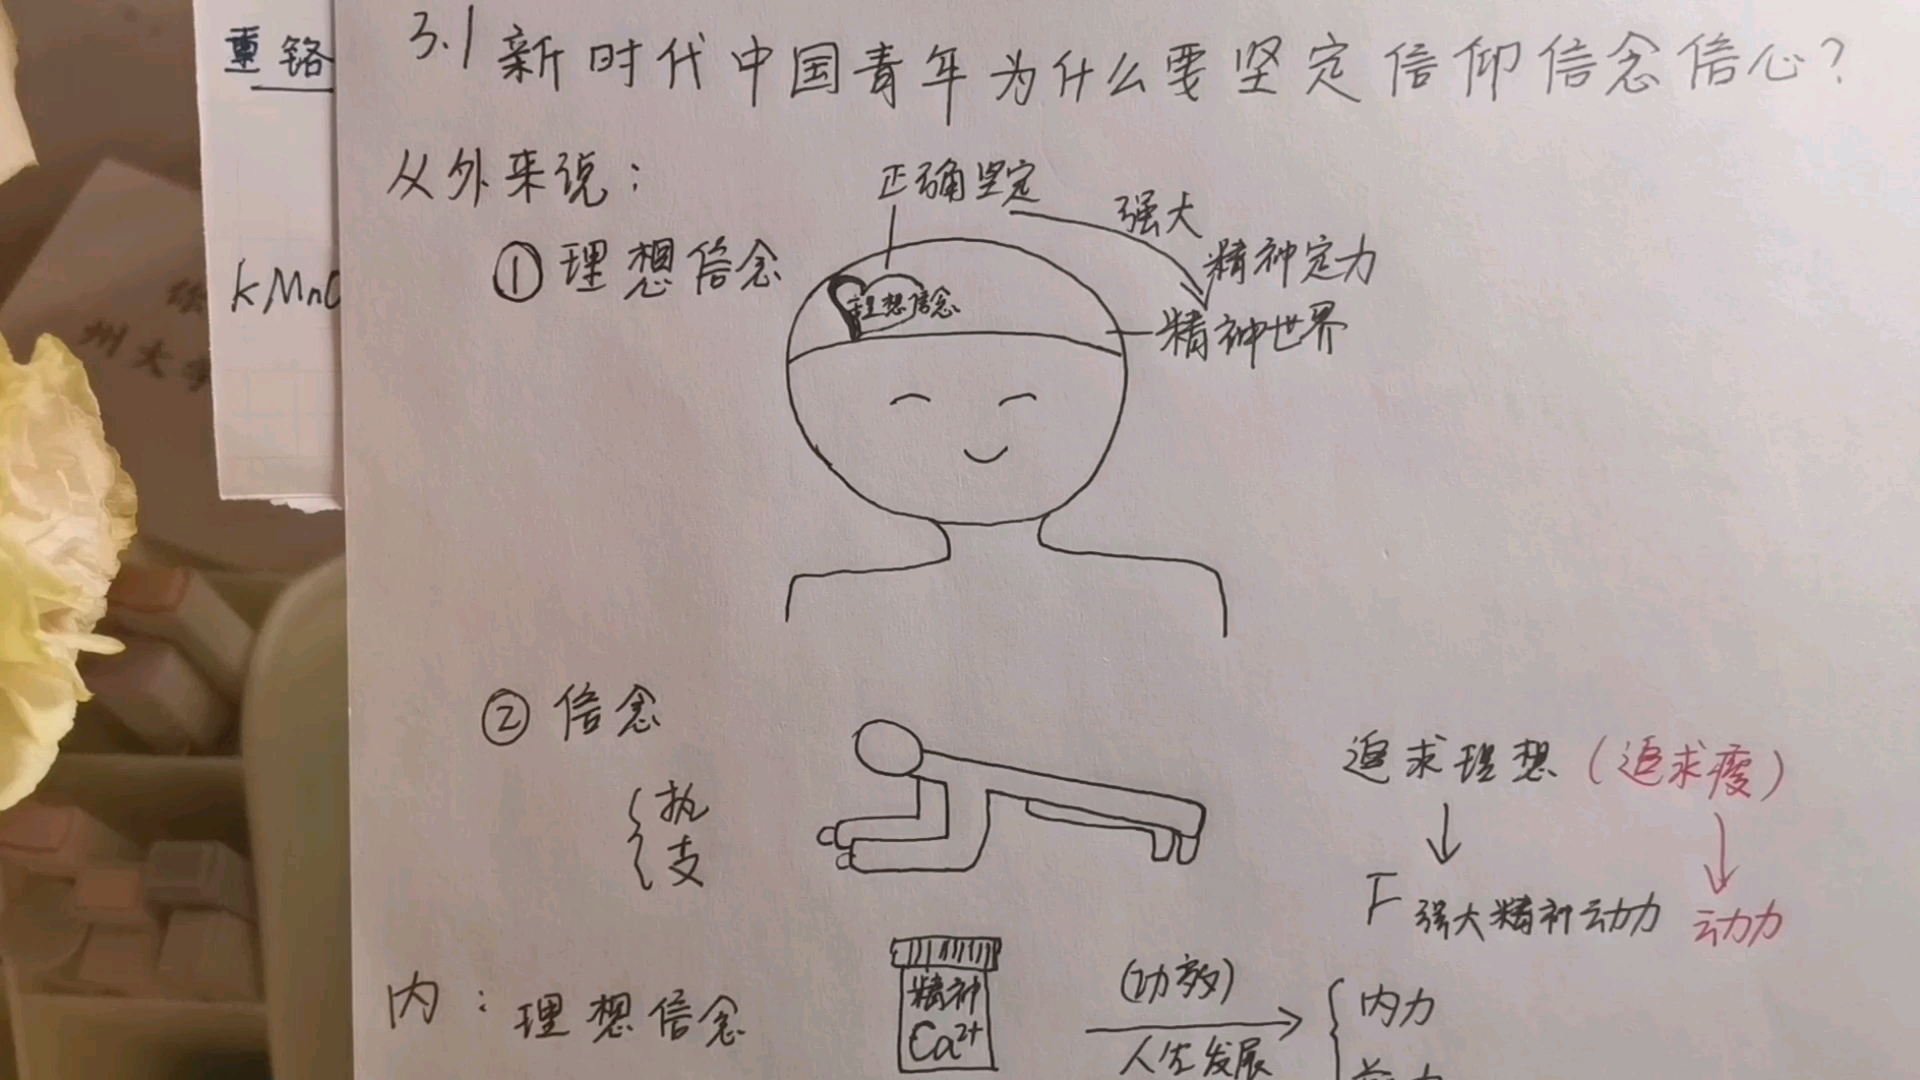 重铬
KMnO
徐
州大学
3.1 新时代中国青年为什么要坚定信仰信念信心?
从外来说:
正确坚定
强大
① 理想信念
精神定力
理想信念
精神世界
② 信念
追求理想(追求瘦)
执
支
F强大精神动力 动力
内:理想信念
精神
Ca²⁺
(功效)
人生发展
内力